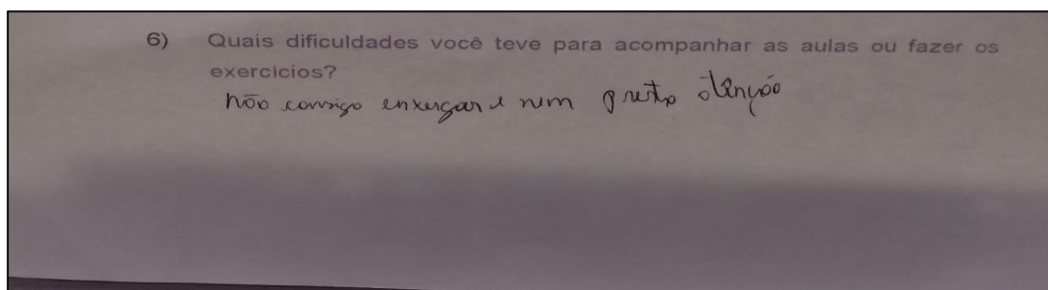 6) Quais dificuldades você teve para acompanhar as aulas ou fazer os
exercícios?
não consigo enxergar e nem presto atenção